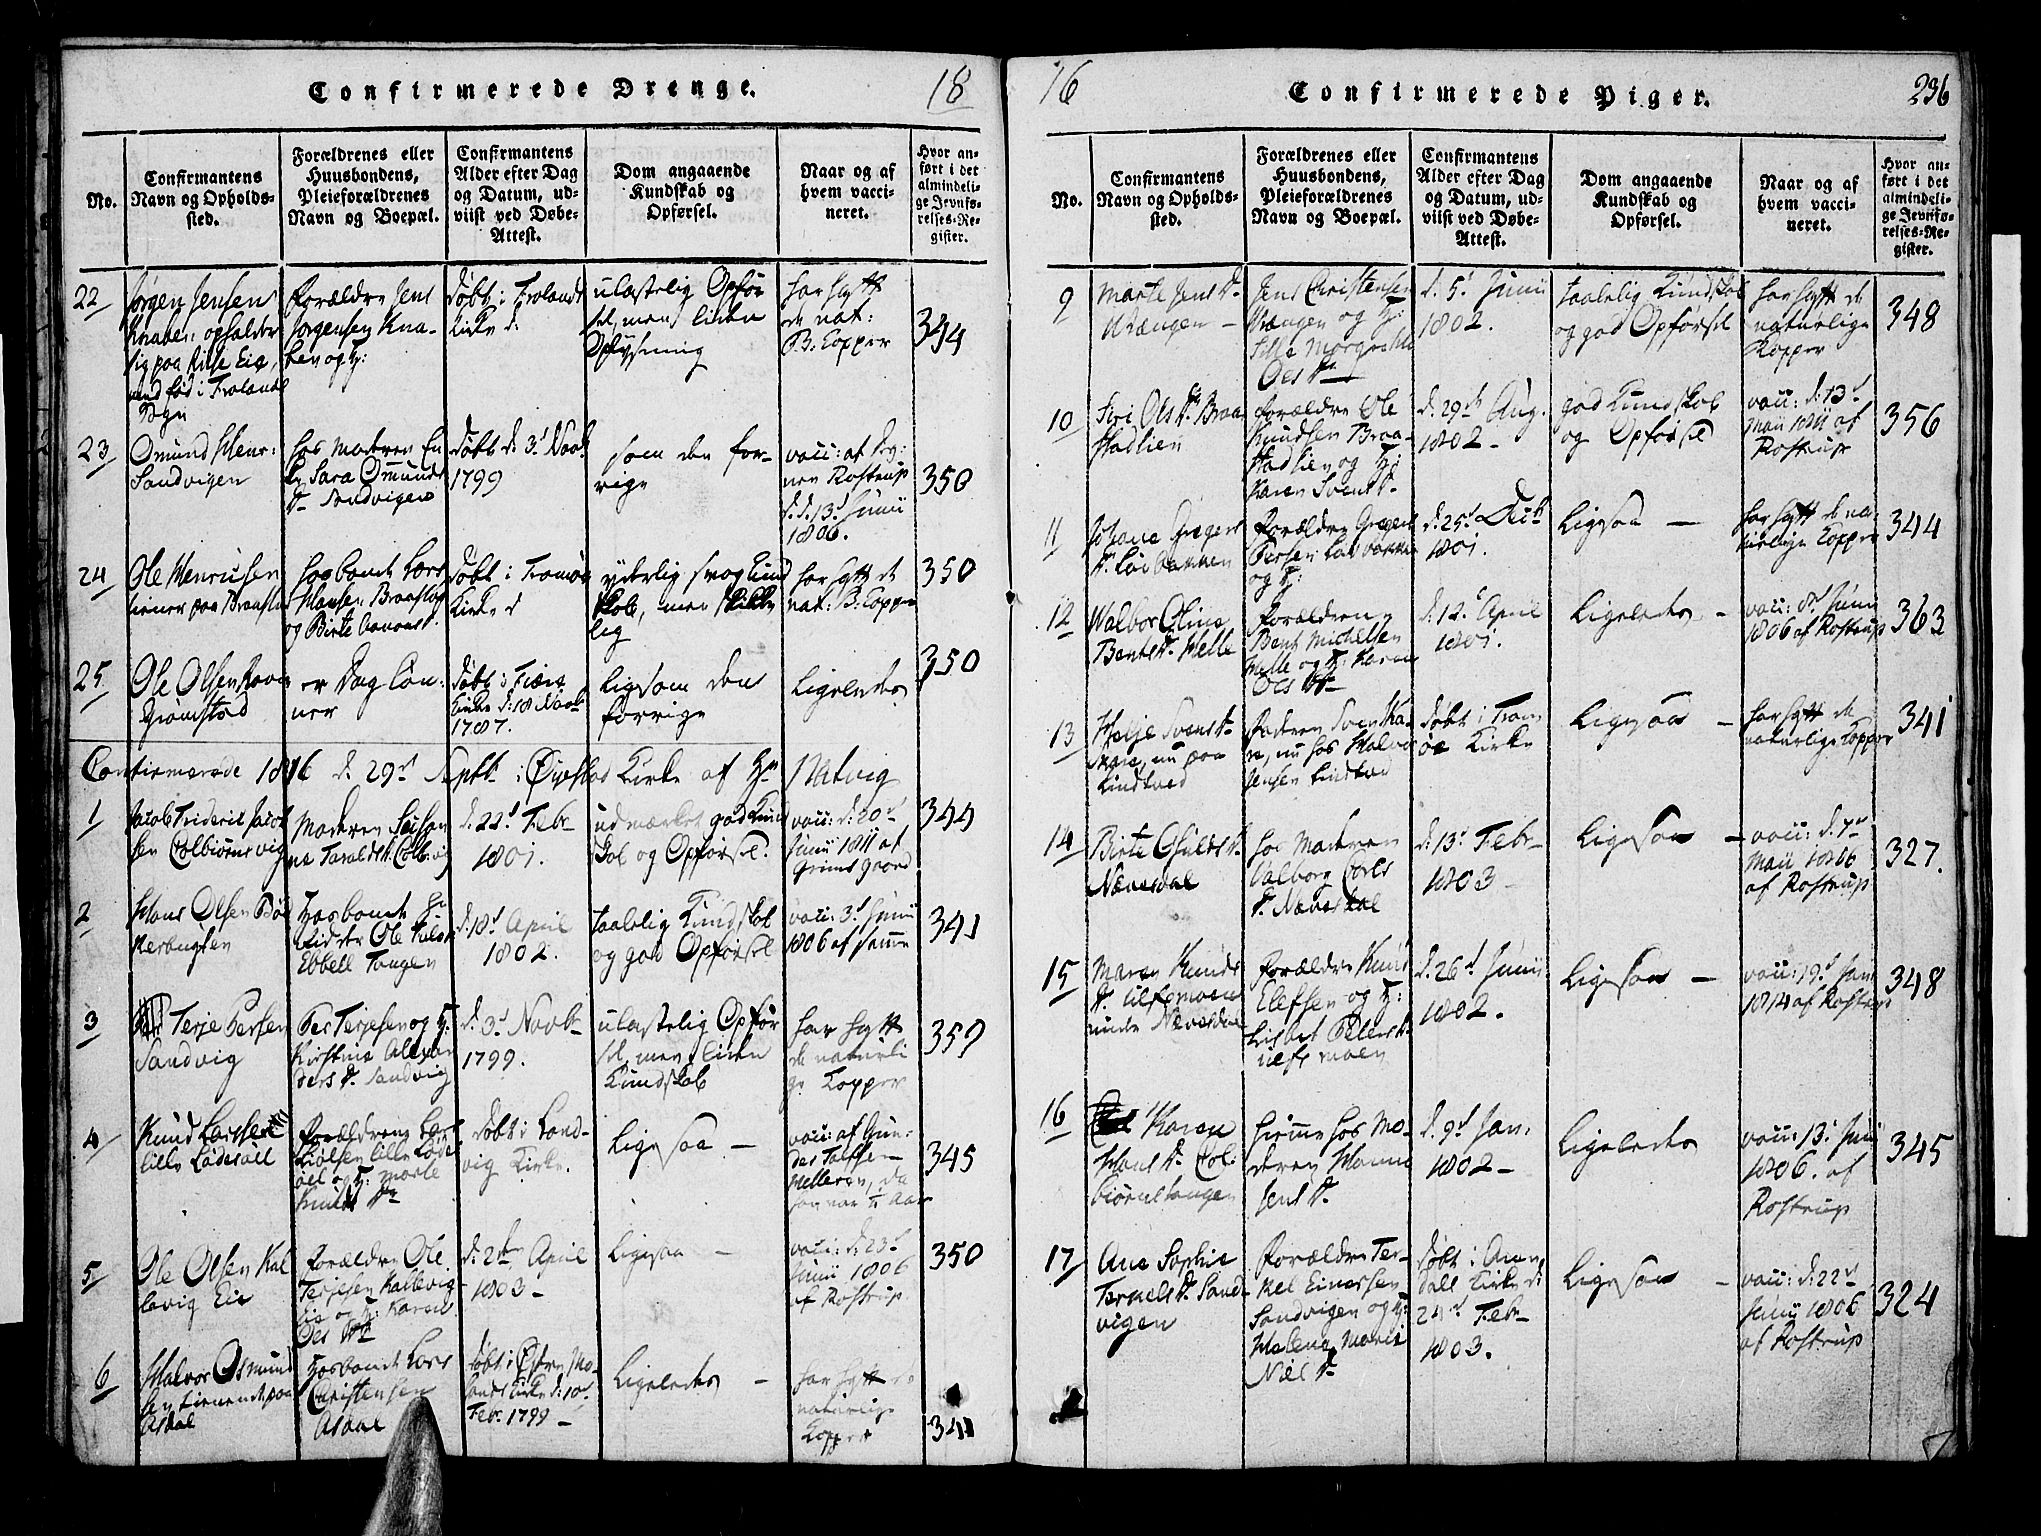 Confirmerede Drenge.
18
No.
Confirmantens
Navn og Opholds-
sted.
Forældrenes eller
Huusbondens,
Pleieforældrenes
Navn og Boepæl.
Confirmantens
Alder efter Dag
og Datum, ud-
viist ved Døbe-
Attest.
Dom angaaende
Kundskab og
Opførsel.
Naar og af
hvem vacci-
neret.
Hvor an-
ført i det
almindeli-
ge Jevnfø-
relses-Re-
gister.
22
Jørgen Jensen
Knaben opholder
sig paa Riise Eie,
men fød i Froland
Sogn
Forældre Jens
Jørgensen Kna-
ben og H:
døbt i Frolands
Kirke d:
ulastelig Opfør
sel, men liden
Oplysning
har haft
de nat:
B: Kopper
344
23
Omund Henr:
Sandvigen
hos Moderen En
ke Sara Omunds
D. Sandvigen
døbt d. 3d Novb.
1799
som den for-
rige
vacc: af
Rostrup
d. 13d Junii
1806.
350
24
Ole Henrichsen
tiener paa Braastad
Hosbond Lars
Hansen Braastad
og Birte
døbt i Tromøe
Kirke d
yderlig svag Kund
skab, men skikke
lig
har haft de
nat: B: Kopper
350
25
Ole Olsen
Grømstad
er Dag Løn-
ner
døbt i Fiære
Kirke d: 18 Novb
1787.
Ligesom den
forrige
Ligeledes
350
Confirmerede 1816 d. 29d Septb. i Øiestad Kirke af Hr Natvig
1
Jacob Friderich Jacob
sen Colbiørnsvig
Moderen Susan
ne Taraldsd. Colb:vig
d. 22d Febr
1801.
udmærket god Kund
skab og Opførsel.
vacc: d: 20d
Junii 1811 af
Grimsgaard
344
2
Hans Olsen Bøl
kerbugten
Hosbond Hr
Ole
Ebbell Tangen
d. 18d April
1802.
taalelig Kundskab
og god Opførsel
vacc: 3d Junii
1806 af samme
341
3
Terje Persen
Sandvig
Per Terjesen og H:
Kirstine Alexan
ders D. Sandvig
d. 3d Novb
1799.
ulastelig Opfør
sel, men liden
Kundskab
har haft
de naturli
ge Kopper
359
4
Knud Larssen
lille Lødesøel
Forældrene Lars
lille Løde
søel og H: Marte
Knuds D
døbt i Land-
vig Kirke.
Ligesaa —
vacc: af Gun-
der
Helleren, da
han var ½ Aar
345
5
Ole Olsen Kal
levig Eie
Forældre Ole
Terjesen Kallevig
Eie og H: Karen
Oles D
d. 2den April
1803 —
Ligesaa —
vacc: d: 23d
Junii 1806
af Rostrup
350
6
Halvor Osmund
sen tienende paa
Asdal
Hosbond Lars
Christensen
Asdal
døbt i Østre Mo-
lands Kirke d: 10d
Febr 1799 —
Ligeledes —
har haft de
naturlige
Kopper
341
16
Confirmerede Piger.
236
No.
Confirmantens
Navn og Opholds-
sted.
Forældrenes eller
Huusbondens,
Pleieforældrenes
Navn og Boepæl.
Confirmantens
Alder efter Dag
og Datum, ud-
viist ved Døbe-
Attest.
Dom angaaende
Kundskab og
Opførsel.
Naar og af
hvem vacci-
neret.
Hvor an-
ført i det
almindeli-
ge Jevnfø-
relses-Re-
gister.
9
Marte Jens D.
Wrængen —
Jens Christensen
Wrængen og H:
Oles D
d. 5d Junii
1802.
taalelig Kundskab
og god Opførsel
har haft de
naturlige
Kopper
348
10
Siri Ols D. Braa
stadlien
Forældre Ole
Knudsen Braa-
stadlien og H:
Karen Svens D.
d. 29d Aug.
1802 —
god Kundskab
og Opførsel
vacc: d: 13d
Maii 1811 af
Rostrup
356
11
Johane Gregers
D. Løvbakken
Forældre Gregers
Persen Løvbakken
og H:
d. 25d Decb
1801.
Ligesaa —
har haft de na-
turlige Kopper
344
12
Walbor Oline
Bents D. Helle
Forældrene
Bent Michelsen
Helle og H: Karen
Oles D
d. 12d April
1801.
Ligeledes —
vacc: Junii
1806 af Rostrup
363
13
Helje Svens D.
nu paa
Lindtved
Faderen Sven
nu hos Halvor
Jensen Lindtved
døbt i Trom
øe Kirke
Ligesaa —
har haft de
naturlige Kopper
341
14
Birte Osulds D.
Nævesdal
hos Moderen
Valborg Carls
D. Nævesdal
d. 13d Febr
1803 —
Ligesaa —
vacc: d. 7d
Maii 1806
af Rostrup
327.
15
Maren Knuds
D. Ulfsmoen
under Nævesdal
Forældre Knud
Elefsen og H:
Lisbet Peders D.
Ulfsmoen
d. 26d Junii
1802.
Ligesaa —
vacc: 19d Jan
1814 af Rostrup
348
16
Karen
Hans D. Col
biørnstangen
hiemme hos Mo-
deren Hanna
Jens D.
d. 9d Jan.
1802 —
Ligeledes
vacc: 13d Junii
1806. af
Rostrup
345
17
Ane Sophie
Terkels D. Sand
vigen
Forældre Ter-
kel Einersen
Sandvigen og H:
Malena Maria
Niels D.
døbt i Aren
dals Kirke d:
24d Febr
1803.
Ligesaa —
vacc: d: 22d
Junii 1806
af Rostrup
324